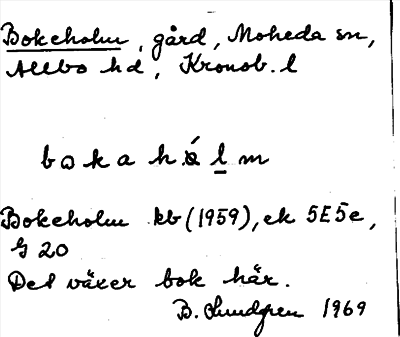 Bokeholm, gård, Moheda sn,
Allbo hd, Kronob. l
bokahólm
Bokeholm kb (1959), ek 5E5e,
G 20
Det växer bok här.
B. Lundgren 1969